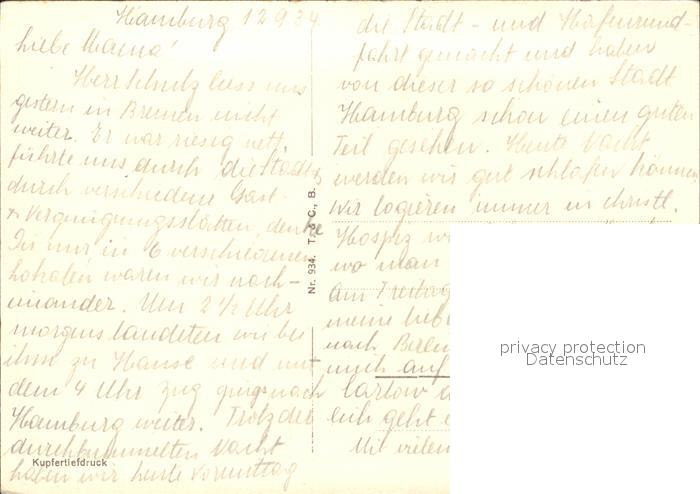 Hamburg 12 9 34
liebe Mama!
Herr Schulz liess uns
gestern in Bremen nicht
weiter. Er war riesig nett,
führte uns durch die Stadt &
durch verschiedene Gast
& Vergnügungsstätten, denke
Dir nur, in 6 verschiedenen
Lokalen waren wir nach-
einander. Um 2 1/2 Uhr
morgens landeten wir bei
ihm zu Hause und mit
dem 4 Uhr Zug gings nach
Hamburg weiter. Trotz der
durchbummelten Nacht
haben wir heute Vormittag
Kupfertiefdruck
Nr. 934. T. & C., B.
die Stadt- und Hafenrund-
fahrt gemacht und haben
von dieser so schönen Stadt
Hamburg schon einen guten
Teil gesehen. Heute Nacht
werden wir gut schlafen können
Wir logieren immer in christl.
Hospiz
wo man
am Freitag
meine liebe
nach Berlin
mich auf
lich geht
Mit vielen
privacy protection
Datenschutz